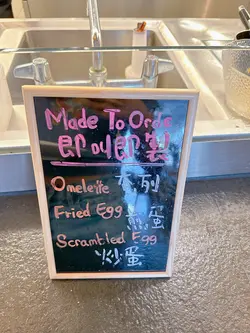 Made To Order
即叫即製
Omelette 奄列
Fried Egg 煎蛋
Scrambled Egg
炒蛋